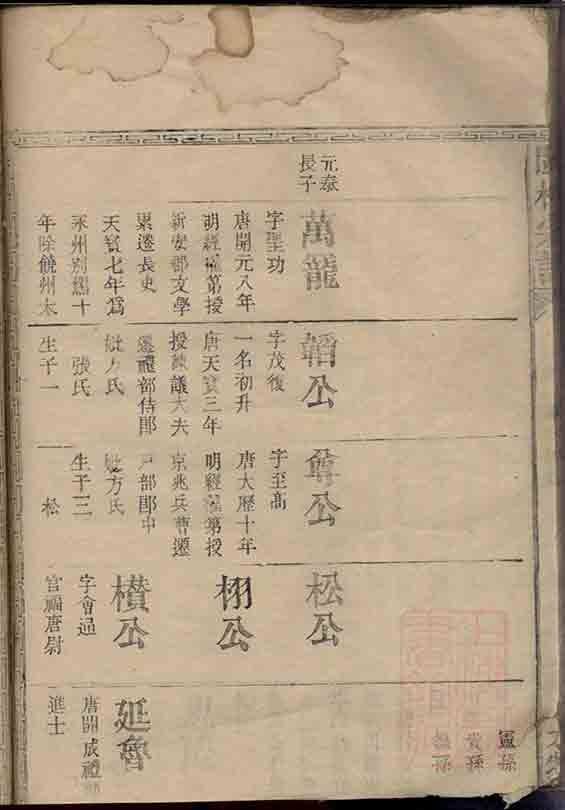 元泰
長子
萬龍
字聖功
唐開元八年
明經擢第授
新安郡文學
累遷長史
天寶七年爲
永州別駕十
年除饒州太
韜公
字茂復
一名初升
唐天寶三年
授諫議大夫
遷禮部侍郎
妣方氏
張氏
生子一
尊公
字至高
唐大歷十年
明經擢第授
京兆兵曹遷
戶部郎中
妣方氏
生子三
松
松公
栩公
樻公
字會通
官福唐尉
延魯
唐開成禮
進士
靈孫
貴孫